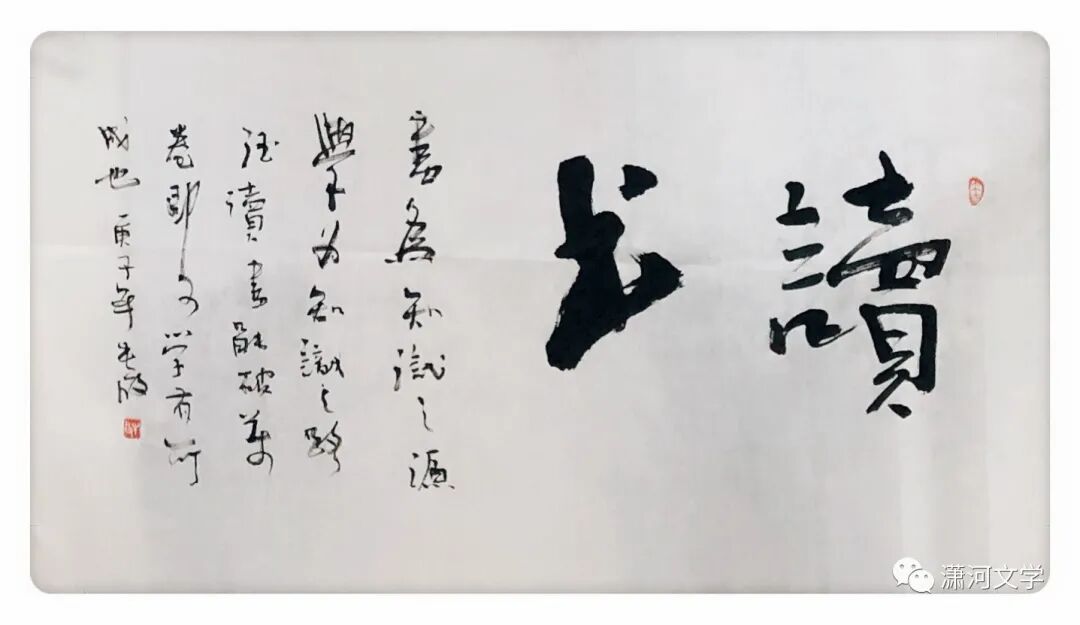 讀书
書為知識之源
學为知識之路
径讀書能破萬
卷即为学有所
成也 庚子年
潇河文学